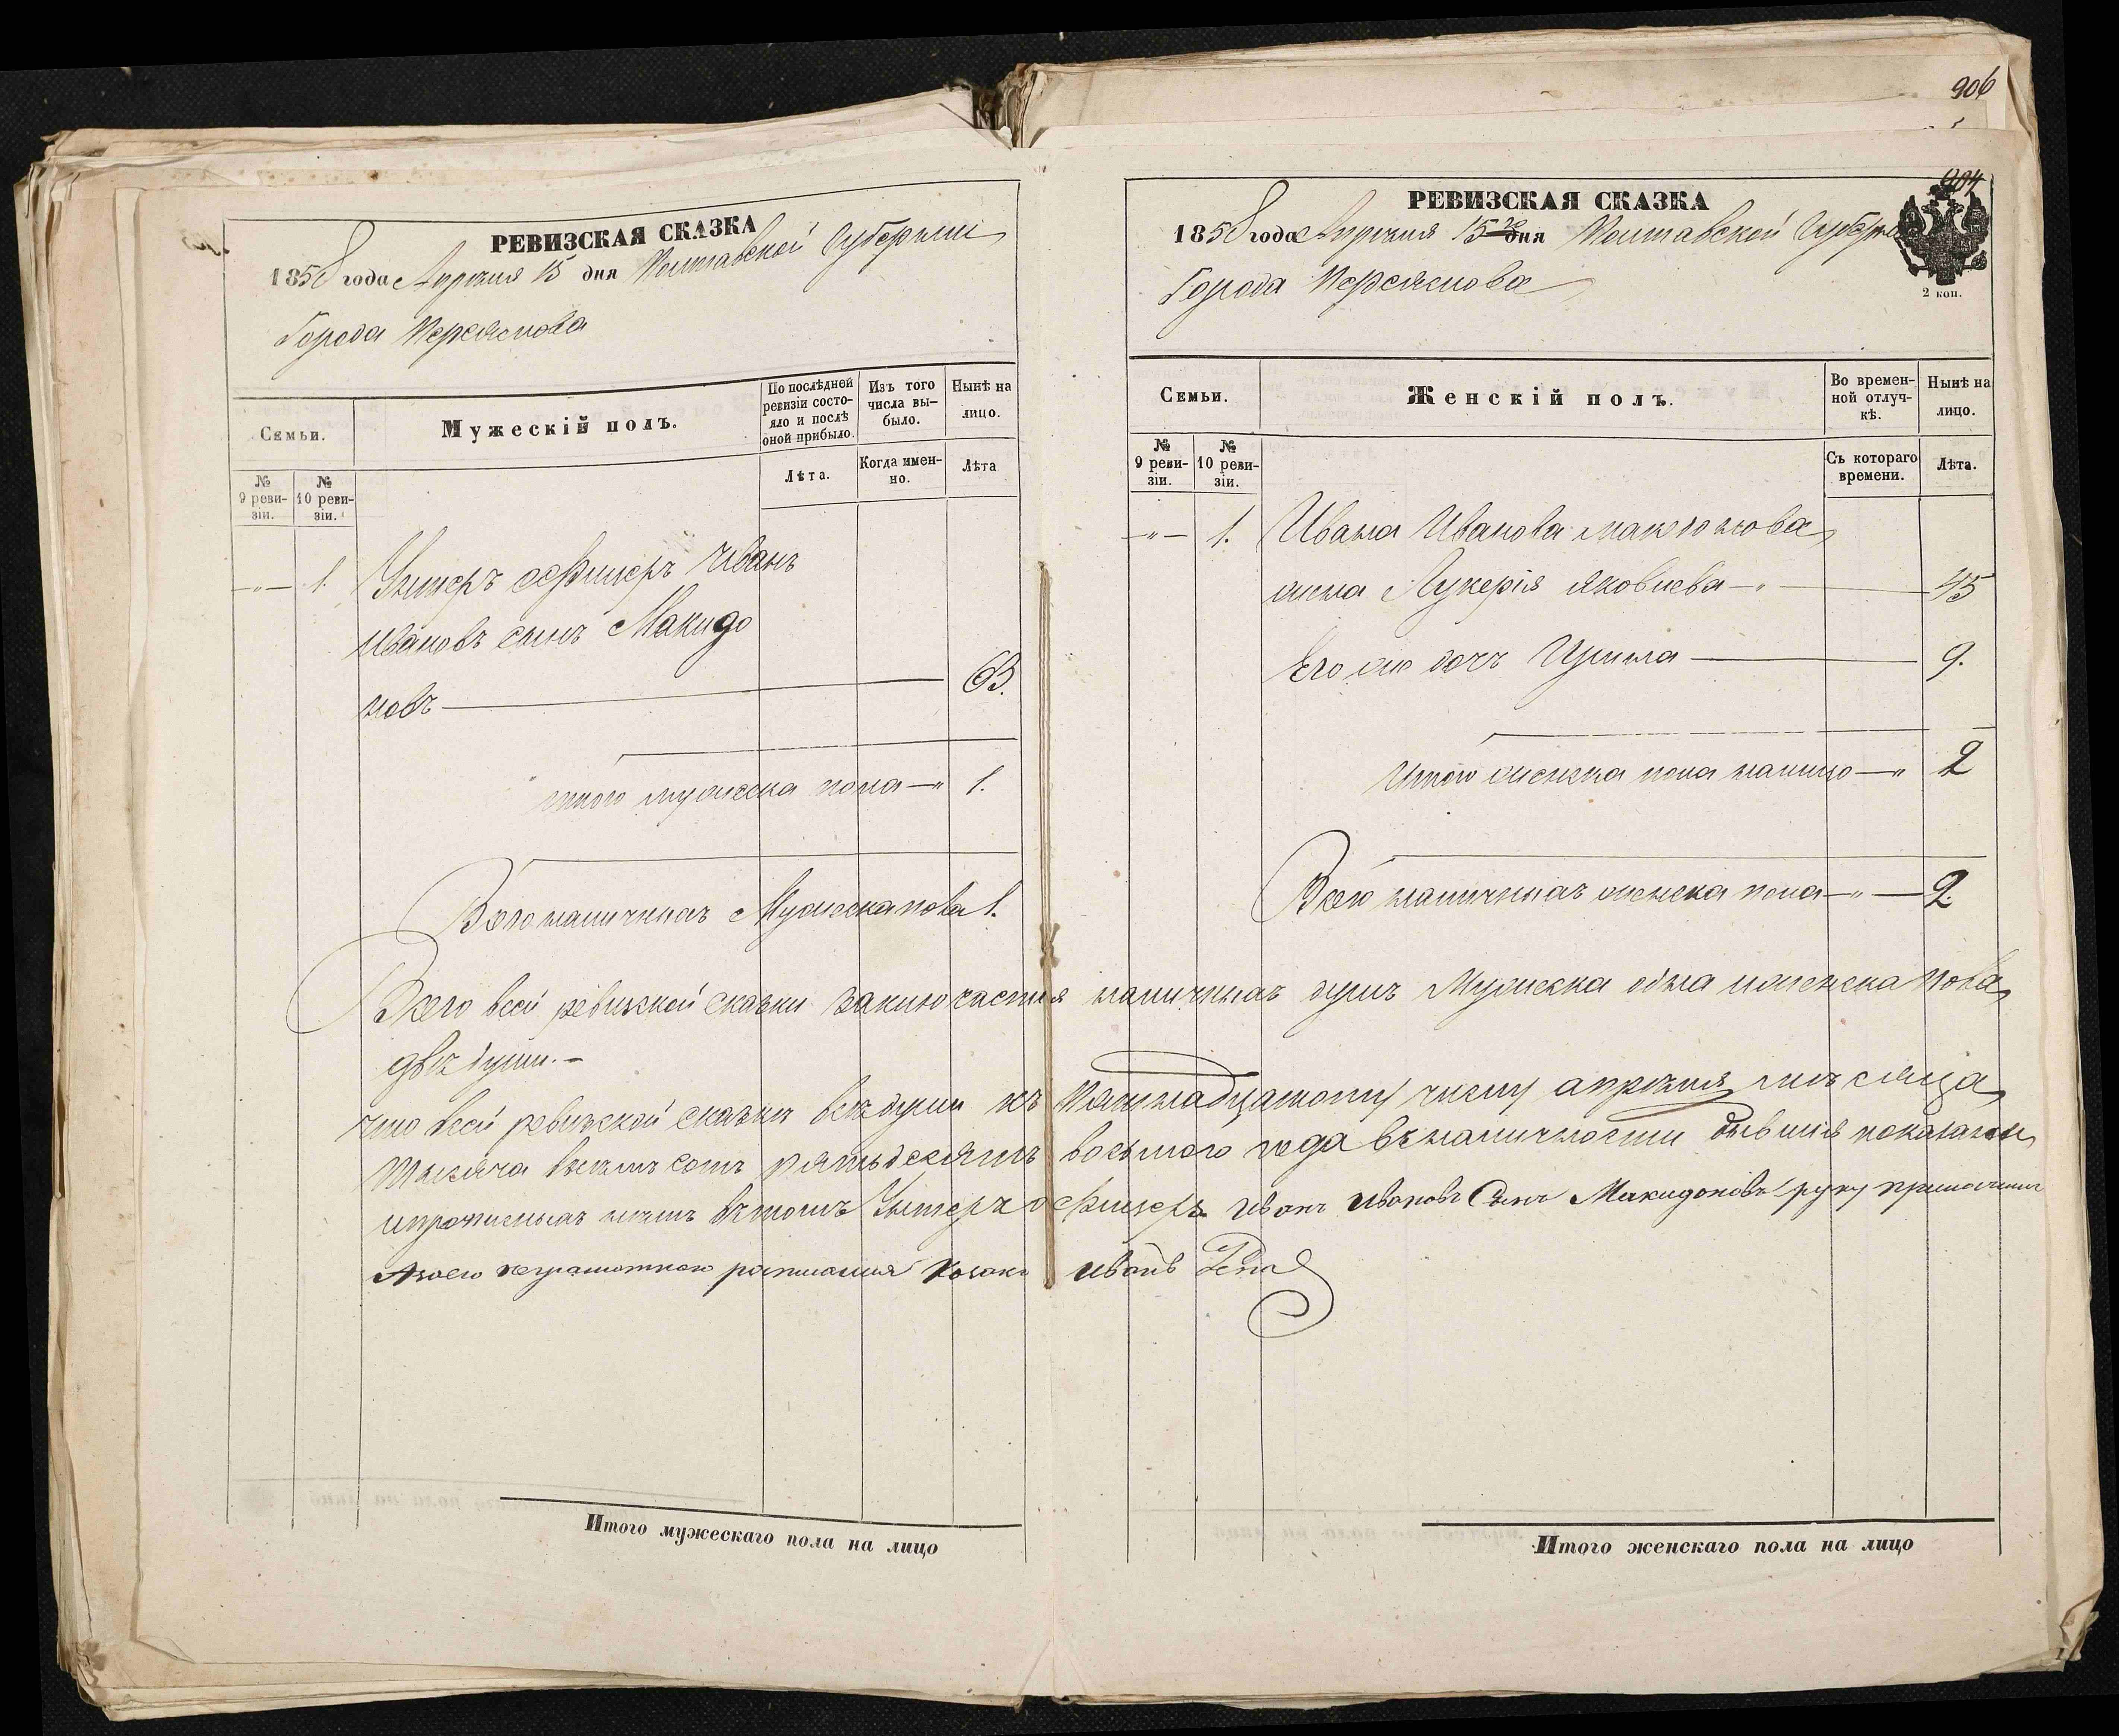 906
РЕВИЗСКАЯ СКАЗКА
1858 года Апрѣля 15 дня Полтавской Губерніи
Города Переяслова
Семьи.
Мужескій полъ.
По послѣдней ревизіи состо-
яло и послѣ оной прибыло.
Изъ того числа вы-
было.
Нынѣ на лицо.
№ 9 реви-
зіи.
№ 10 реви-
зіи.
Лѣта.
Когда имен-
но.
Лѣта
—"— 1. Унтеръ офицеръ Иванъ
Ивановъ сынъ Макидо
новъ 63.
итого мужеска пола —" 1.
Всего наличныхъ Мужеска пола 1.
904
РЕВИЗСКАЯ СКАЗКА
1858 года Апрѣля 15 го дня Полтавской Губерніи
Города Переяслова
2 коп.
Семьи.
Женскій полъ.
Во времен-
ной отлуч-
кѣ.
Нынѣ на лицо.
№ 9 реви-
зіи.
№ 10 реви-
зіи.
Съ котораго времени.
Лѣта.
—"— 1. Ивана Иванова
жена Лукерія Яковлева —"— 45
Его же дочь Ирина 9.
Итого женска пола налицо —" 2
Всего наличныхъ женска пола —"— 2.
Всего всей ревизской сказки заключается наличныхъ душъ Мужеска одна и женска пола
двѣ души. —
что всей ревизской сказки всѣ души къ пятнадцатому числу апрѣля мѣсяца
тысяча восемь сотъ пятьдесятъ восьмого года въ наличности бывшія показаны
и прописныхъ нѣтъ въ томъ Унтеръ офицеръ Иванъ Ивановъ Сынъ Макидоновъ руку приложилъ
А за его неграмотного росписался Козакъ Иванъ
Итого мужескаго пола на лицо
Итого женскаго пола на лицо